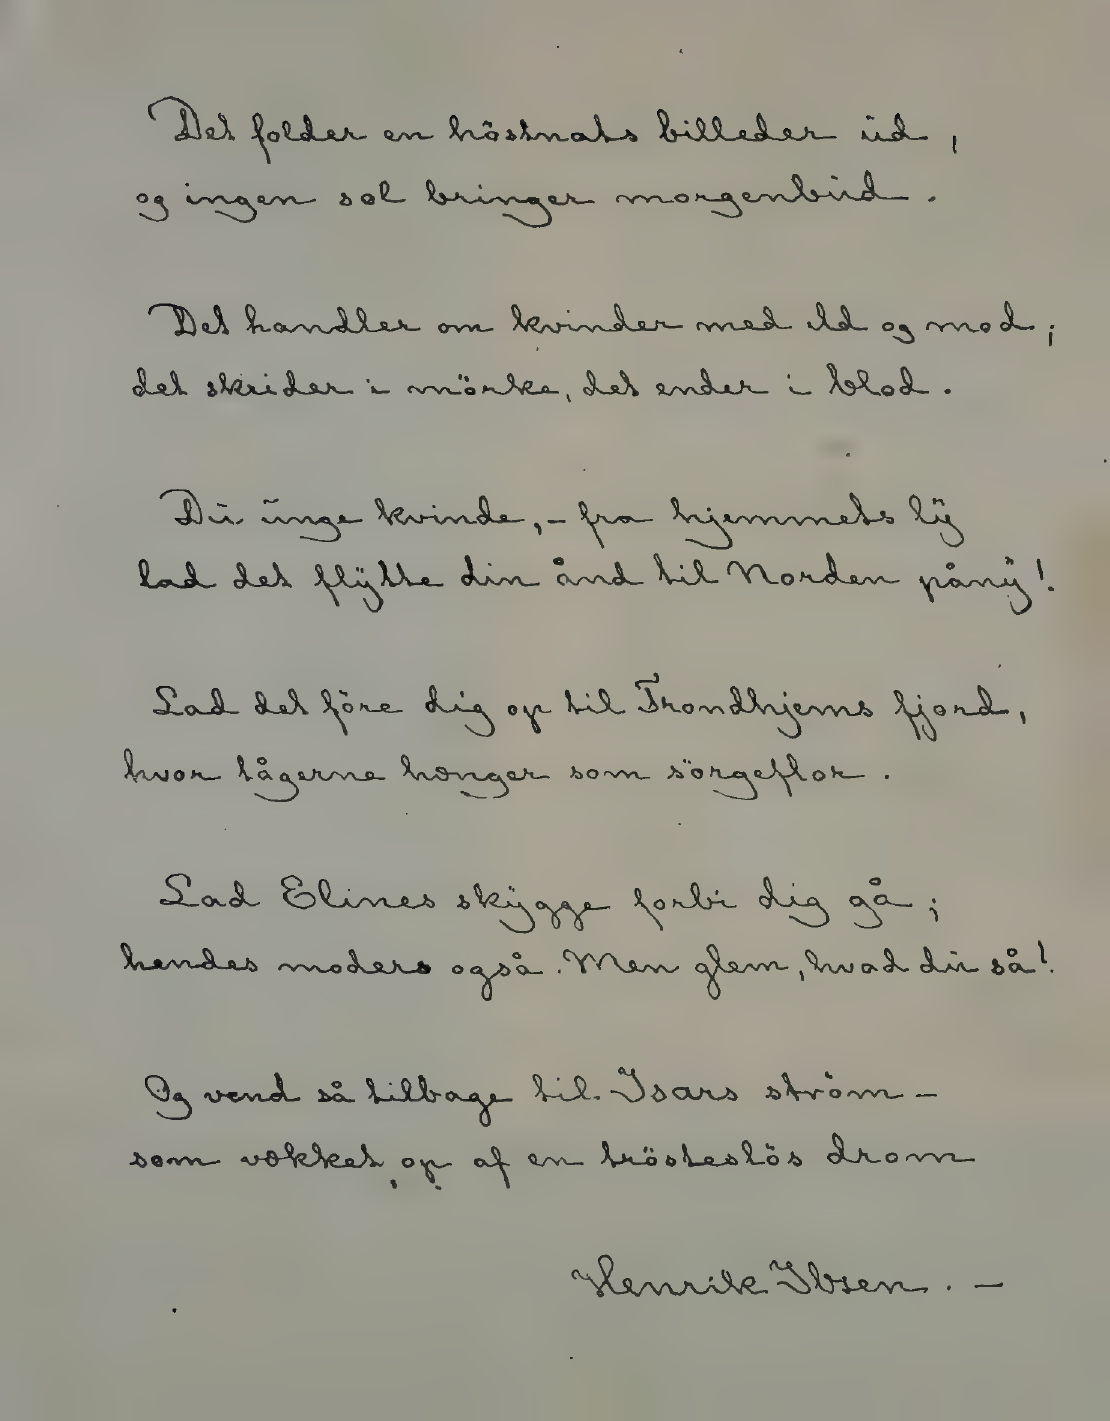 Det folder en höstnats billeder ud,
og ingen sol bringer morgenbud.
Det handler om kvinder med ild og mod;
det skrider i mörke, det ender i blod.
Du unge kvinde, – fra hjemmets ly
lad det flytte din ånd til Norden påny!
Lad det före dig op til Trondhjems fjord,
hvor tågerne hænger som sörgeflor.
Lad Elines skygge forbi dig gå;
hendes moders også. Men glem, hvad du så!
Og vend så tilbage til Isars ström –
som vækket op af en trösteslös dröm
Henrik Ibsen. –